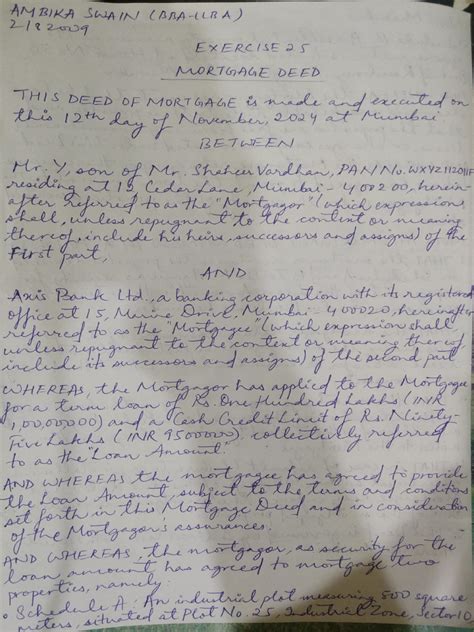 AMBIKA SWAIN (BBA-LLB A)
2182009
EXERCISE 25
MORTGAGE DEED
THIS DEED OF MORTGAGE is made and executed on
this 12th day of November, 2024 at Mumbai
BETWEEN
Mr. Y, son of Mr. Shaheer Vardhan, PAN No.
residing at 15 Cedar Lane, Mumbai - 400200, herein
after referred to as the "Mortgagor" (which expression
shall, unless repugnant to the context or meaning
thereof, include his heirs, successors and assigns) of the
First part,
AND
Axis Bank Ltd., a banking corporation with its registered
office at 15, Marine Drive, Mumbai - 400020, hereinafter
referred to as the "Mortgagee" (which expression shall
unless repugnant to the context or meaning thereof
include its successors and assigns) of the second part
WHEREAS, the Mortgagor has applied to the Mortgagee
for a term loan of Rs. One Hundred Lakhs (INR
1,00,00,000) and a Cash Credit Limit of Rs. Ninety-
Five Lakhs (INR 9500000), collectively referred
to as the "Loan Amount."
AND WHEREAS the mortgagee has agreed to provide
the Loan Amount, subject to the terms and conditions
set forth in this Mortgage Deed and in consideration
of the Mortgagor's assurances.
AND WHEREAS, the mortgagor, as security for the
loan amount has agreed to mortgage two
properties, namely
• Schedule A: An industrial plot measuring 500 square
meters, situated at Plot No. 25, Industrial Zone, Sector 10